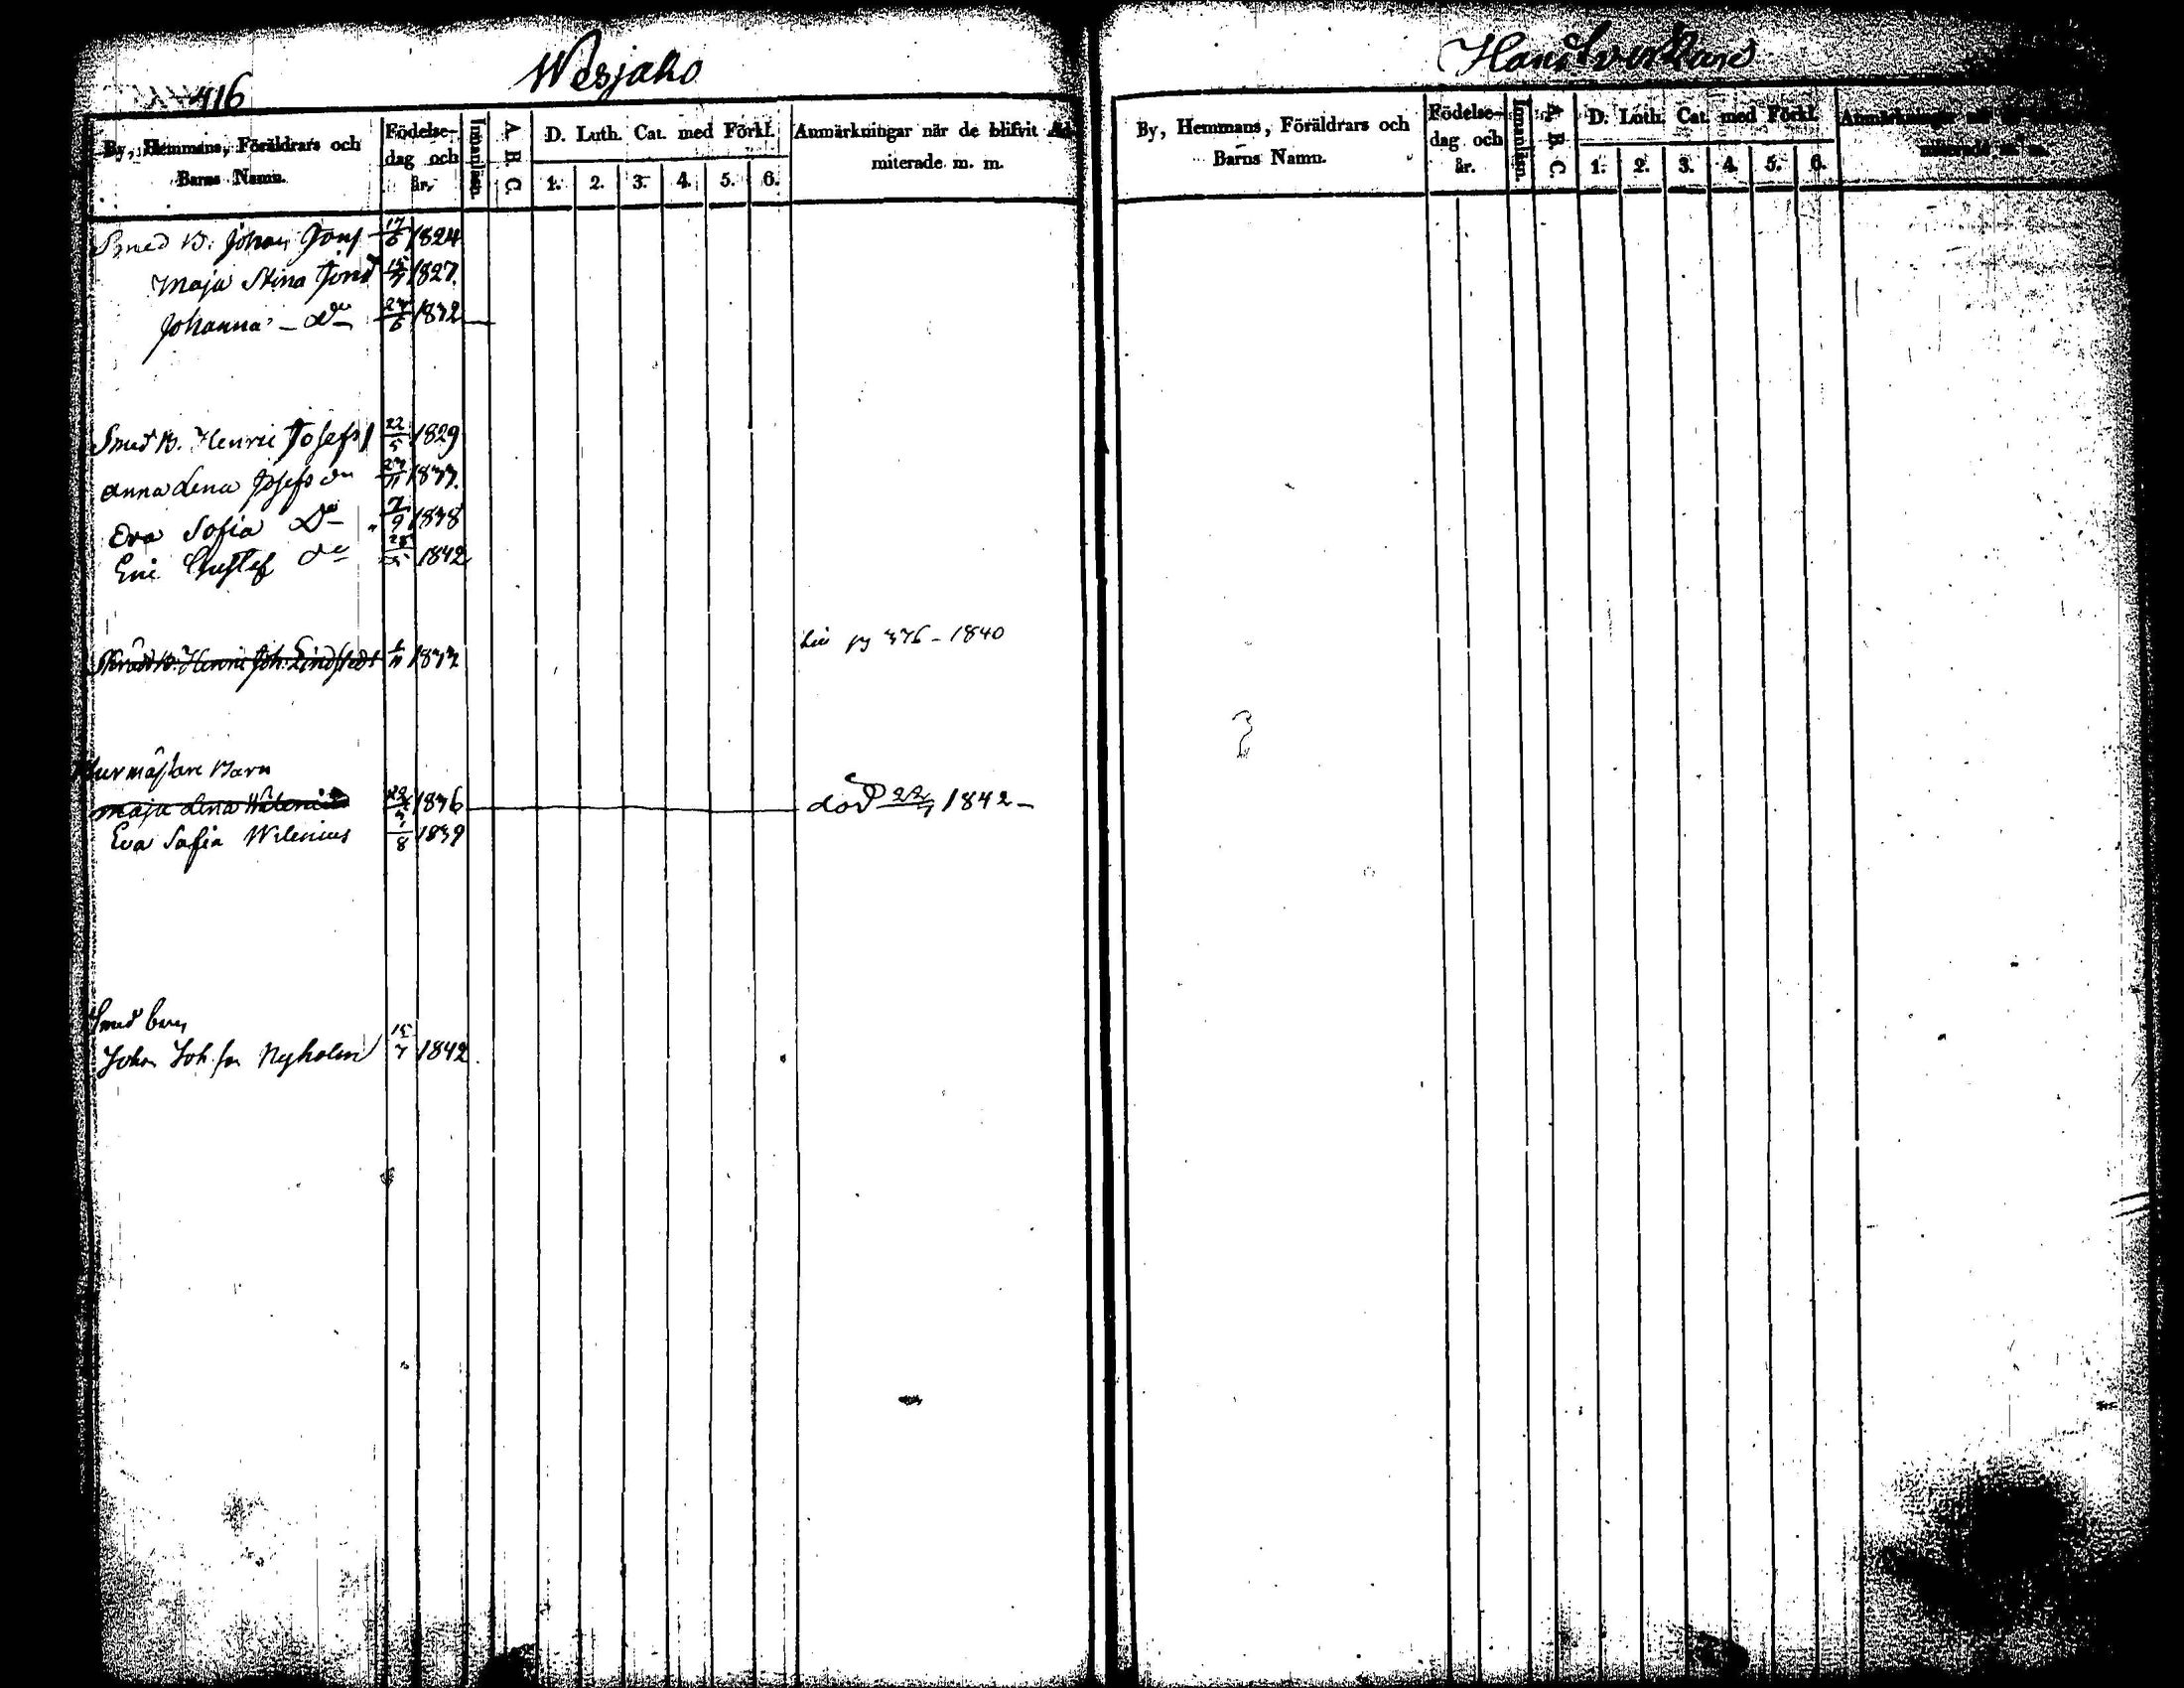 416
Wesjako
By, Hemmans, Föräldrars och Barns Namn.
Födelse-dag och år.
Innanläsn.
A. B. C.
D. Luth. Cat. med Förkl.
1. 2. 3. 4. 5. 6.
Anmärkningar när de blifvit Ad-
miterade m. m.
Smed B. Johan 17/6 1824
Maja Stina 1827.
Johanna - Do 27/6 1832
Smed B. Henric Josefs 22/5 1829
Anna Lena Josefs 1833.
Eva Sofia Do 7/9 1838
Eric Gustef do 1842
Skrädd B. Henric Joh. Lindstedt 1833
376 - 1840
Barn
Maja Lena Wilenius 1836 död 22/7 1842 -
Eva Safia Wilenius 8 1839
Smed barn
Johan Joh. son Nyholm 15/7 1842
Handtverkare
By, Hemmans, Föräldrars och
Barns Namn.
Födelse-dag och år.
Innanläsn.
A. B. C.
D. Luth. Cat. med Förkl.
1. 2. 3. 4. 5. 6.